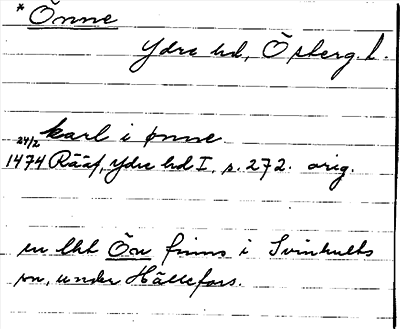 * Önne
Ydre hd, Östberg l.
karl i ønne
24/2
1474 Rääf, Ydre hd I, s. 272. orig.
en lht Ön finns i Svinhults
sn, under Hällefors.